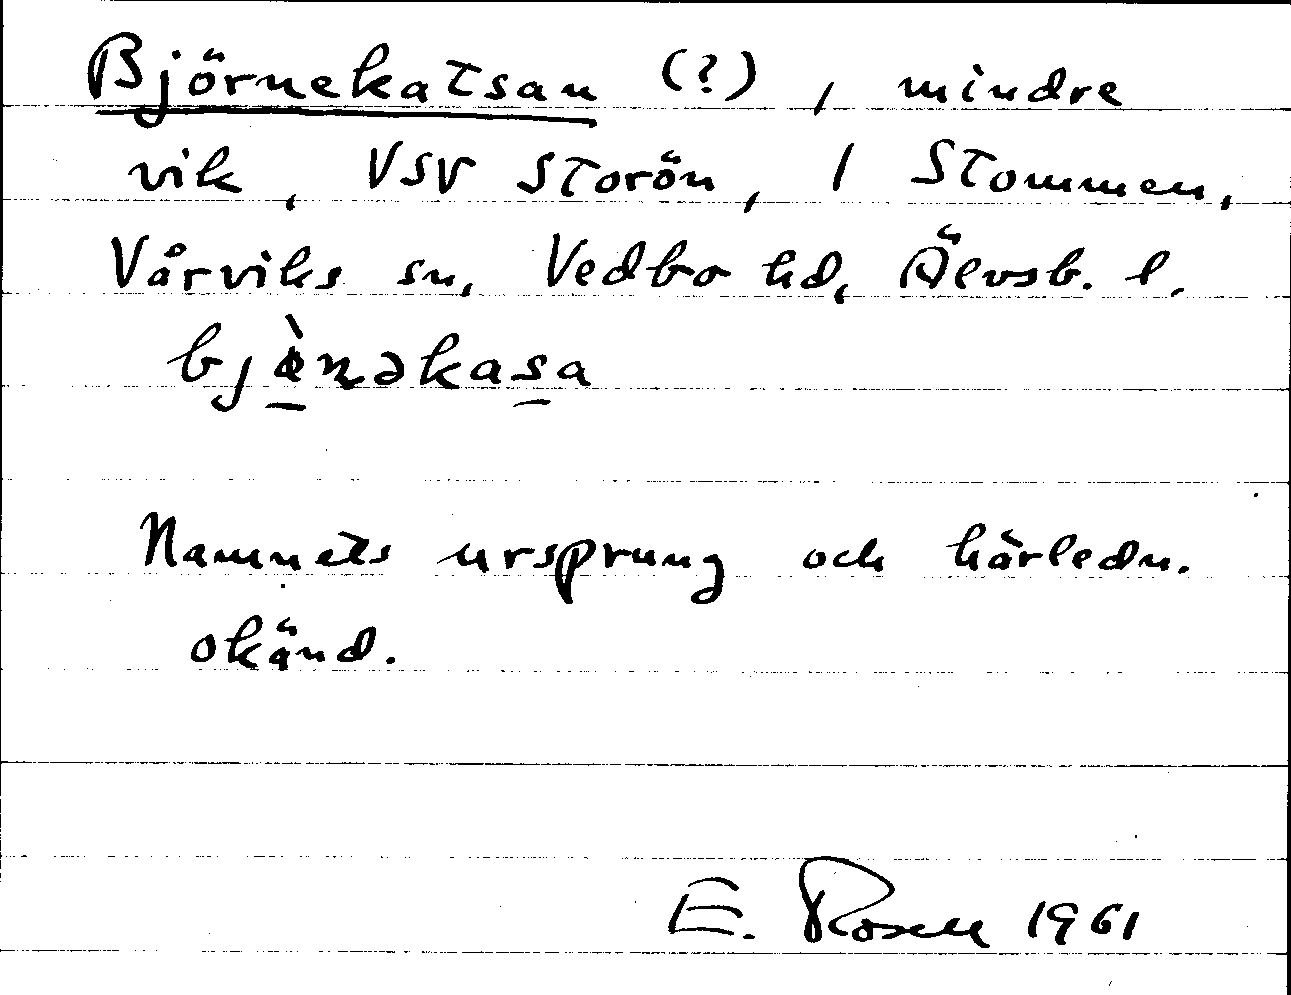 Björnekatsan (?), mindre
vik, VSV Storön, 1 Stommen,
Vårviks sn, Vedbo hd, Älvsb. l.
Namnets ursprung och härledn.
okänd.
E. Rosell 1961